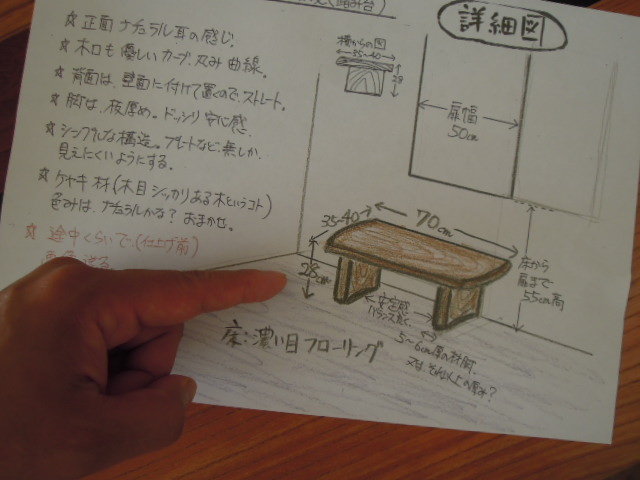 (踏み台)
詳細図
☆ 正面ナチュラル耳の感じ。
☆ 木口も優しいカーブ、丸み曲線。
☆ 背面は、壁面に付けて置くので、ストレート。
☆ 脚は、板厚め。ドッシリ安心感。
☆ シンプルな構造。プレートなど、無しか、
見えにくいようにする。
☆ ケヤキ材(木目シッカリある木というコト)
色みは、ナチュラルかな?おまかせ。
☆ 途中くらいで、(仕上げ前)
横からの図
35~40
28
扉幅
50cm
35~40
70cm
28cm
安定感
バランス良く。
5~6cm厚の材閒、
又は、それ以上の厚み?
床から
扉まで
55cm高
床:濃い目フローリング